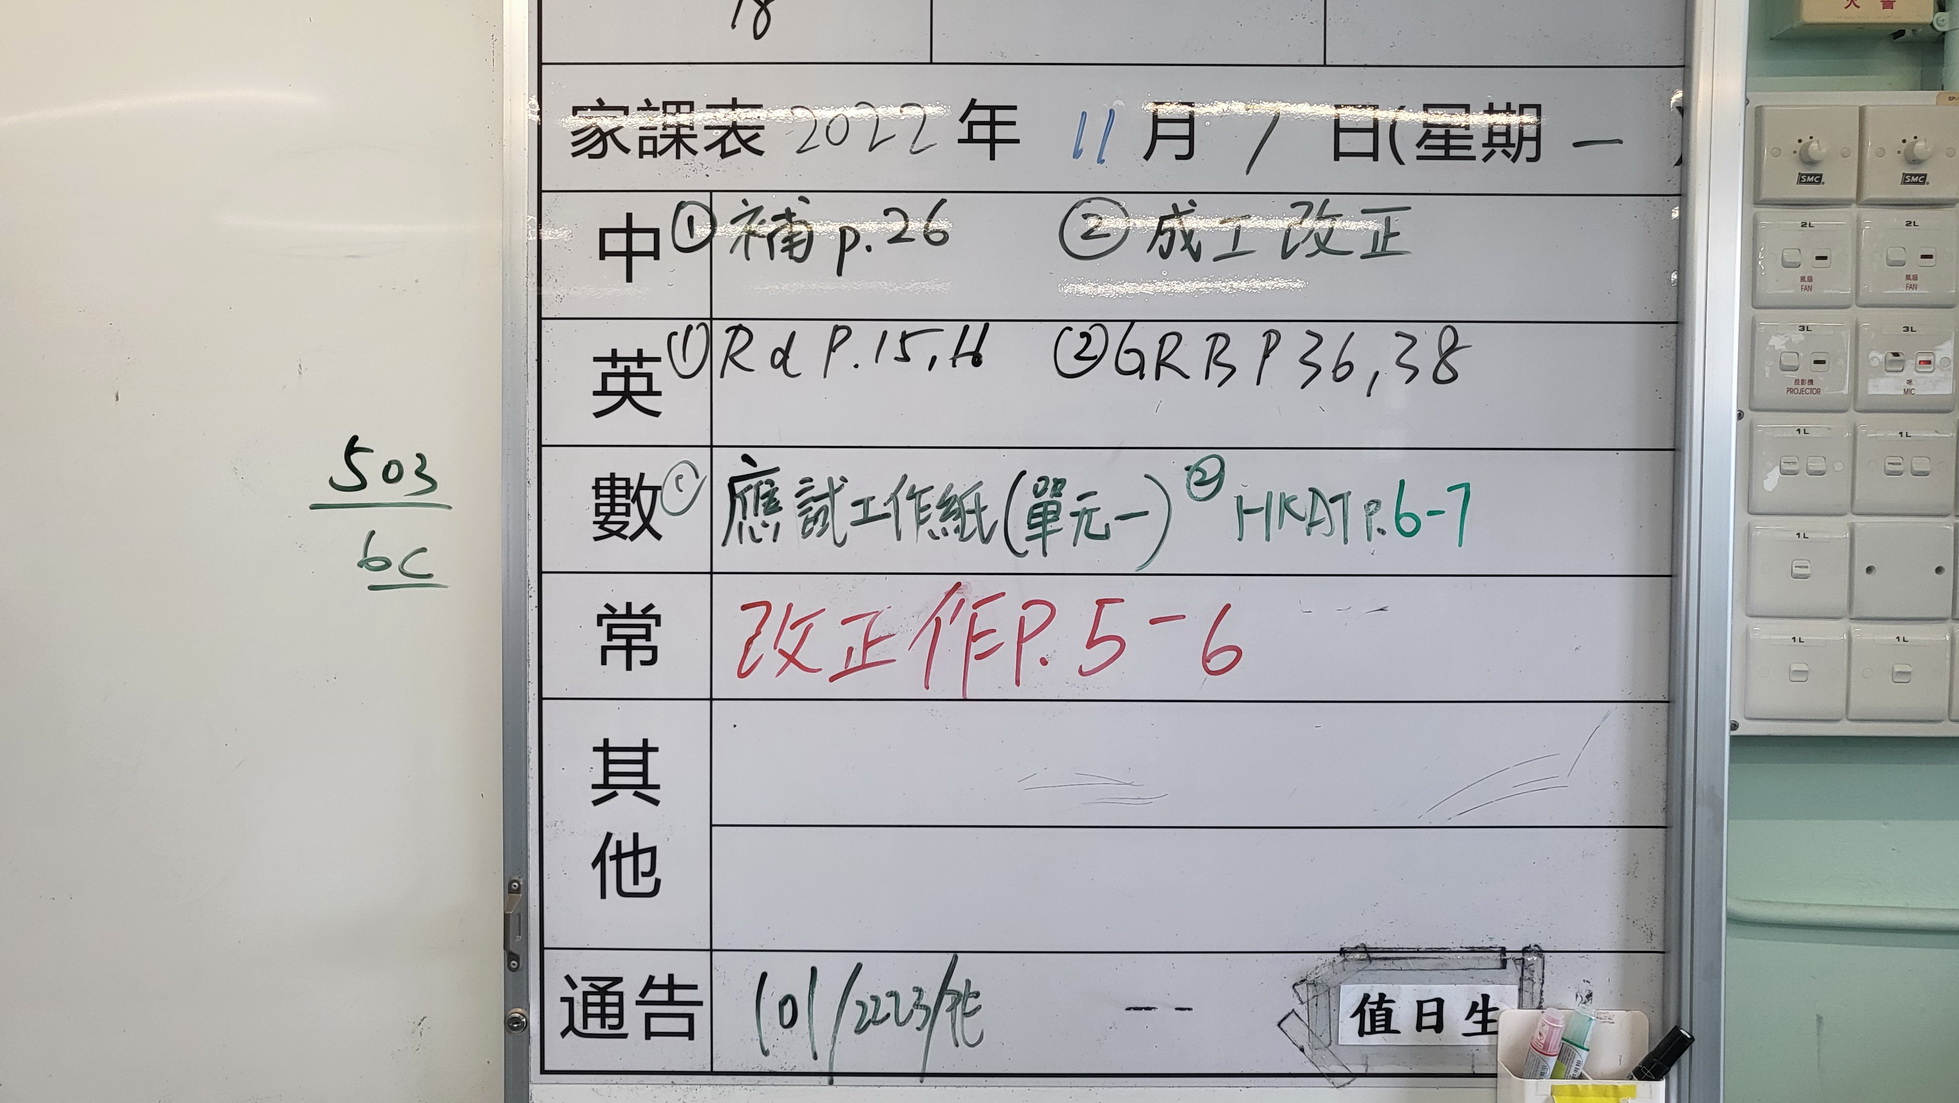 18
家課表 2022年 11月 1日(星期 一 )
中 ① 補 p.26 ② 成工改正
英 ① Rd P.15,16 ② GRB P 36,38
數 ① 應試工作紙(單元一) ② HKAT p.6-7
常 改正作P.5-6
其他
通告 101/2223/花 --
值日生
503
6C
火警
SMC SMC
2L 2L
風扇 FAN 風扇 FAN
3L 3L
投影機 PROJECTOR 咪 MIC
1L 1L
1L
1L 1L